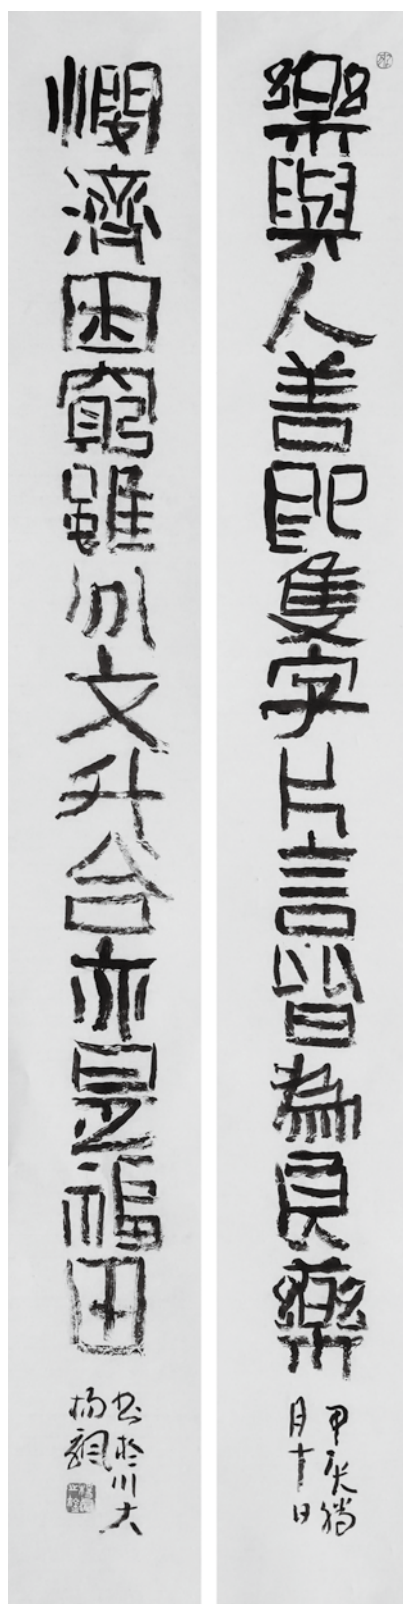 樂與人善即隻字片言皆為良藥
甲辰臘
月十日
憫濟困窮雖分文升合亦是福田
書於川大
楊